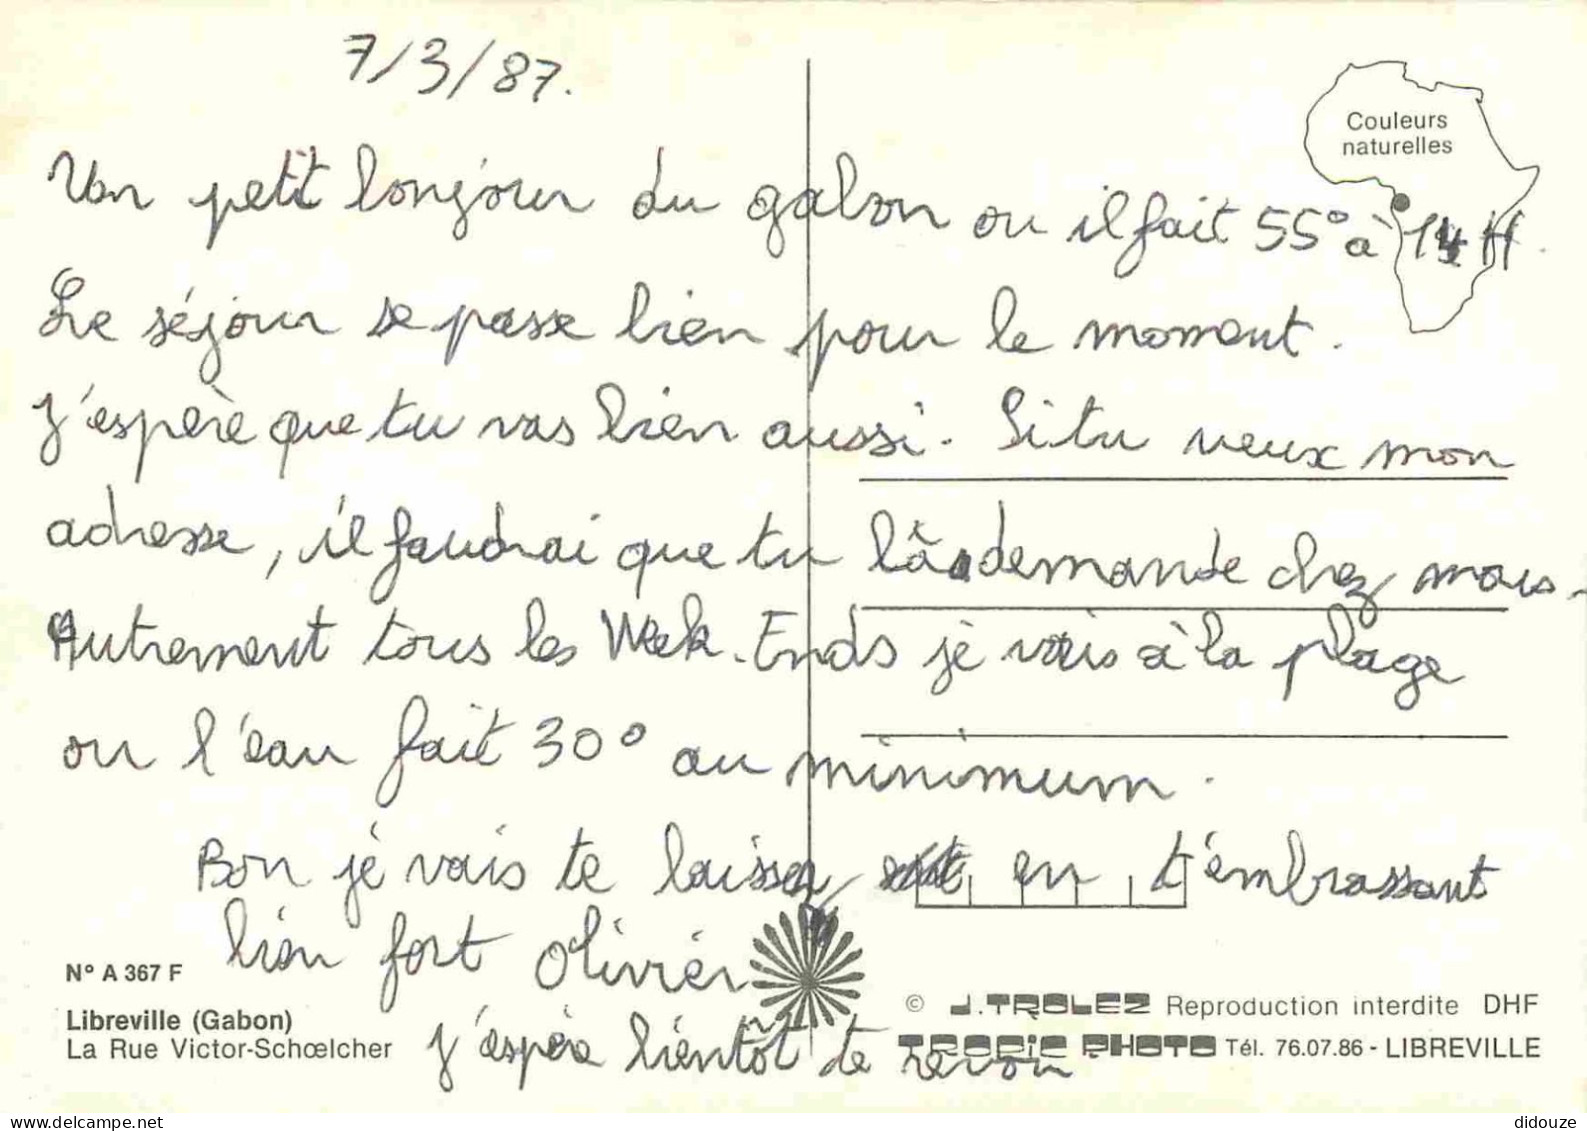 7/3/87.
Couleurs
naturelles
Un petit bonjour du gabon ou il fait 55° à 14 H.
Le séjour se passe bien pour le moment.
J'espère que tu vas bien aussi. Si tu veux mon
adresse, il faudrai que tu la demande chez mous.
Autrement tous les Week-Ends je vais à la plage
ou l'eau fait 30° au minimum.
Bon je vais te laisser en t'embrassant
bien fort Olivier
J'espère bientôt te revoir
N° A 367 F
Libreville (Gabon)
La Rue Victor-Schœlcher
© J. TROLEZ Reproduction interdite DHF
TROPIC PHOTO Tél. 76.07.86 - LIBREVILLE
didouze